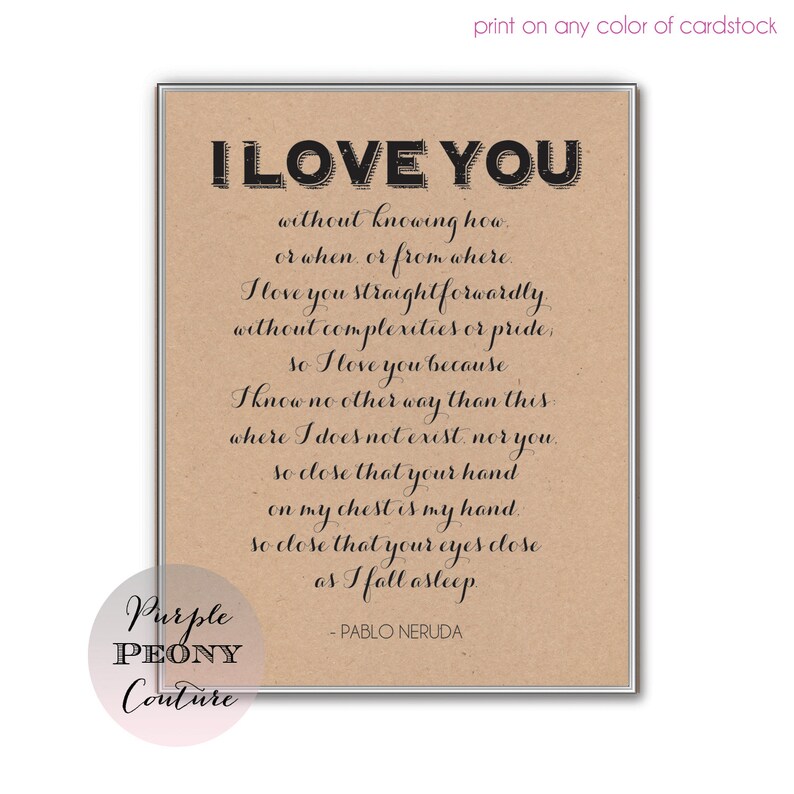 print on any color of cardstock
I LOVE YOU
without knowing how,
or when, or from where.
I love you straightforwardly,
without complexities or pride;
so I love you because
I know no other way than this:
where I does not exist, nor you,
so close that your hand
on my chest is my hand,
so close that your eyes close
as I fall asleep.
- PABLO NERUDA
Purple
PEONY
Couture